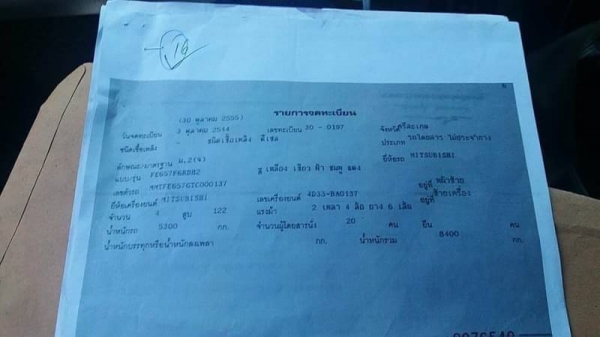 16
(30 ตุลาคม 2555) รายการจดทะเบียน
วันจดทะเบียน 3 ตุลาคม 2544 เลขทะเบียน 30 - 0187 จังหวัด ศรีสะเกษ
ชนิดเชื้อเพลิง - ชนิดเชื้อเพลิง ดีเซล ประเภท รถโดยสาร ไม่ประจำทาง
ลักษณะ/มาตรฐาน ม.2(จ) ยี่ห้อรถ MITSUBISHI
แบบ/รุ่น FE657F6RDH2 สี เหลือง เขียว ฟ้า ชมพู แดง
เลขตัวรถ MMTFE657GTC000137 อยู่ที่ พลับซ้าย
ยี่ห้อเครื่องยนต์ MITSUBISHI เลขเครื่องยนต์ 4D33-BA0157 อยู่ที่ ซ้ายเครื่อง
จำนวน 4 สูบ 122 แรงม้า 2 เพลา 4 ล้อ ยาง 6 เส้น
น้ำหนักรถ 5300 กก. จำนวนผู้โดยสารนั่ง 20 คน ยืน - คน
น้ำหนักบรรทุกหรือน้ำหนักลงเพลา กก. น้ำหนักรวม 8400 กก.